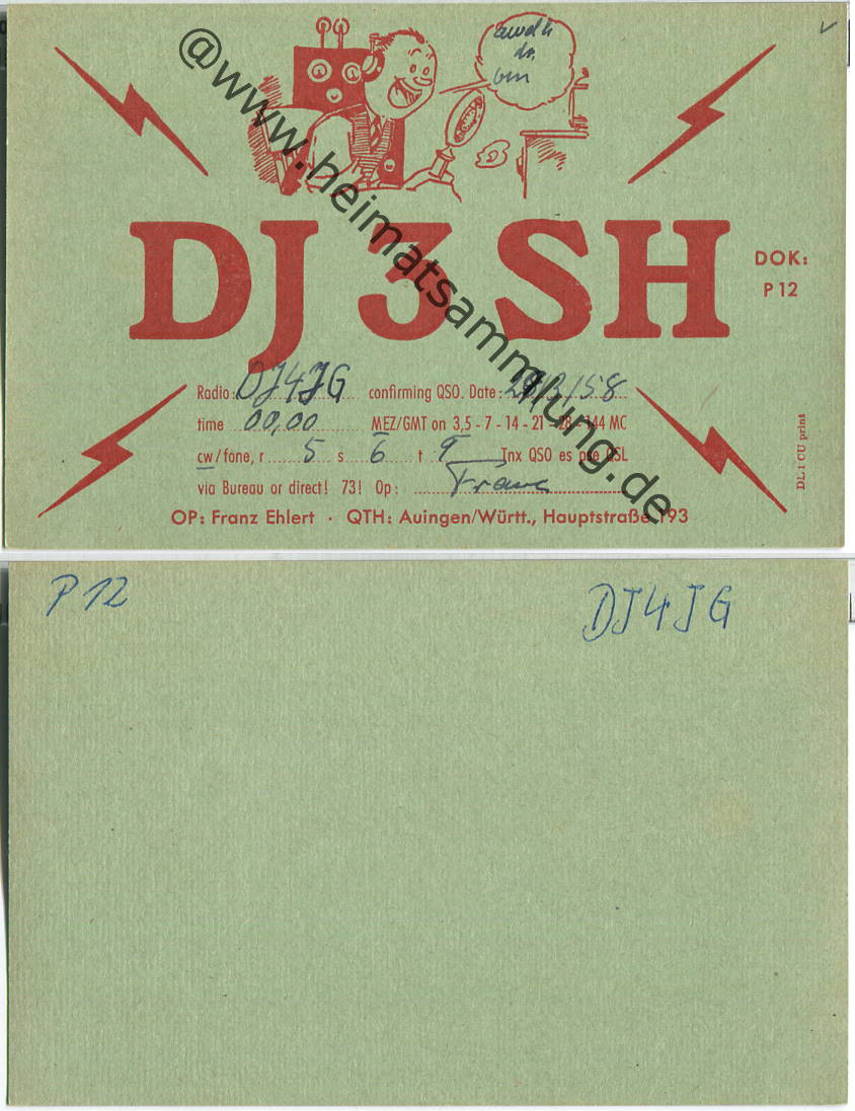 @www.heimatsammlung.de
DJ 3 SH
DOK:
P 12
Radio: DJ4JG confirming QSO. Date: /58
time 00,00 MEZ/GMT on 3,5 - 7 - 14 - 21 - 28 - 144 MC
cw/fone, r 5 s 6 t 9 Tnx QSO es pse QSL
via Bureau or direct! 73! Op: Franz
OP: Franz Ehlert · QTH: Auingen/Württ., Hauptstraße 193
DL 1 CU print
P 12
DJ4JG